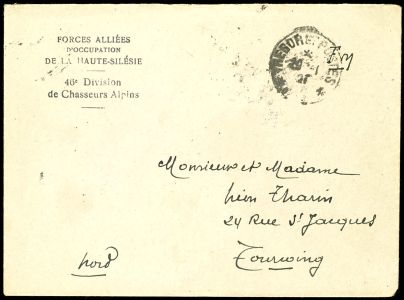 FORCES ALLIÉES
D'OCCUPATION
DE LA HAUTE-SILÉSIE
46e Division
de Chasseurs Alpins
POSTES
FM
Monsieur et Madame
Léon Tharin
24 Rue St Jacques
Tourcoing
Nord